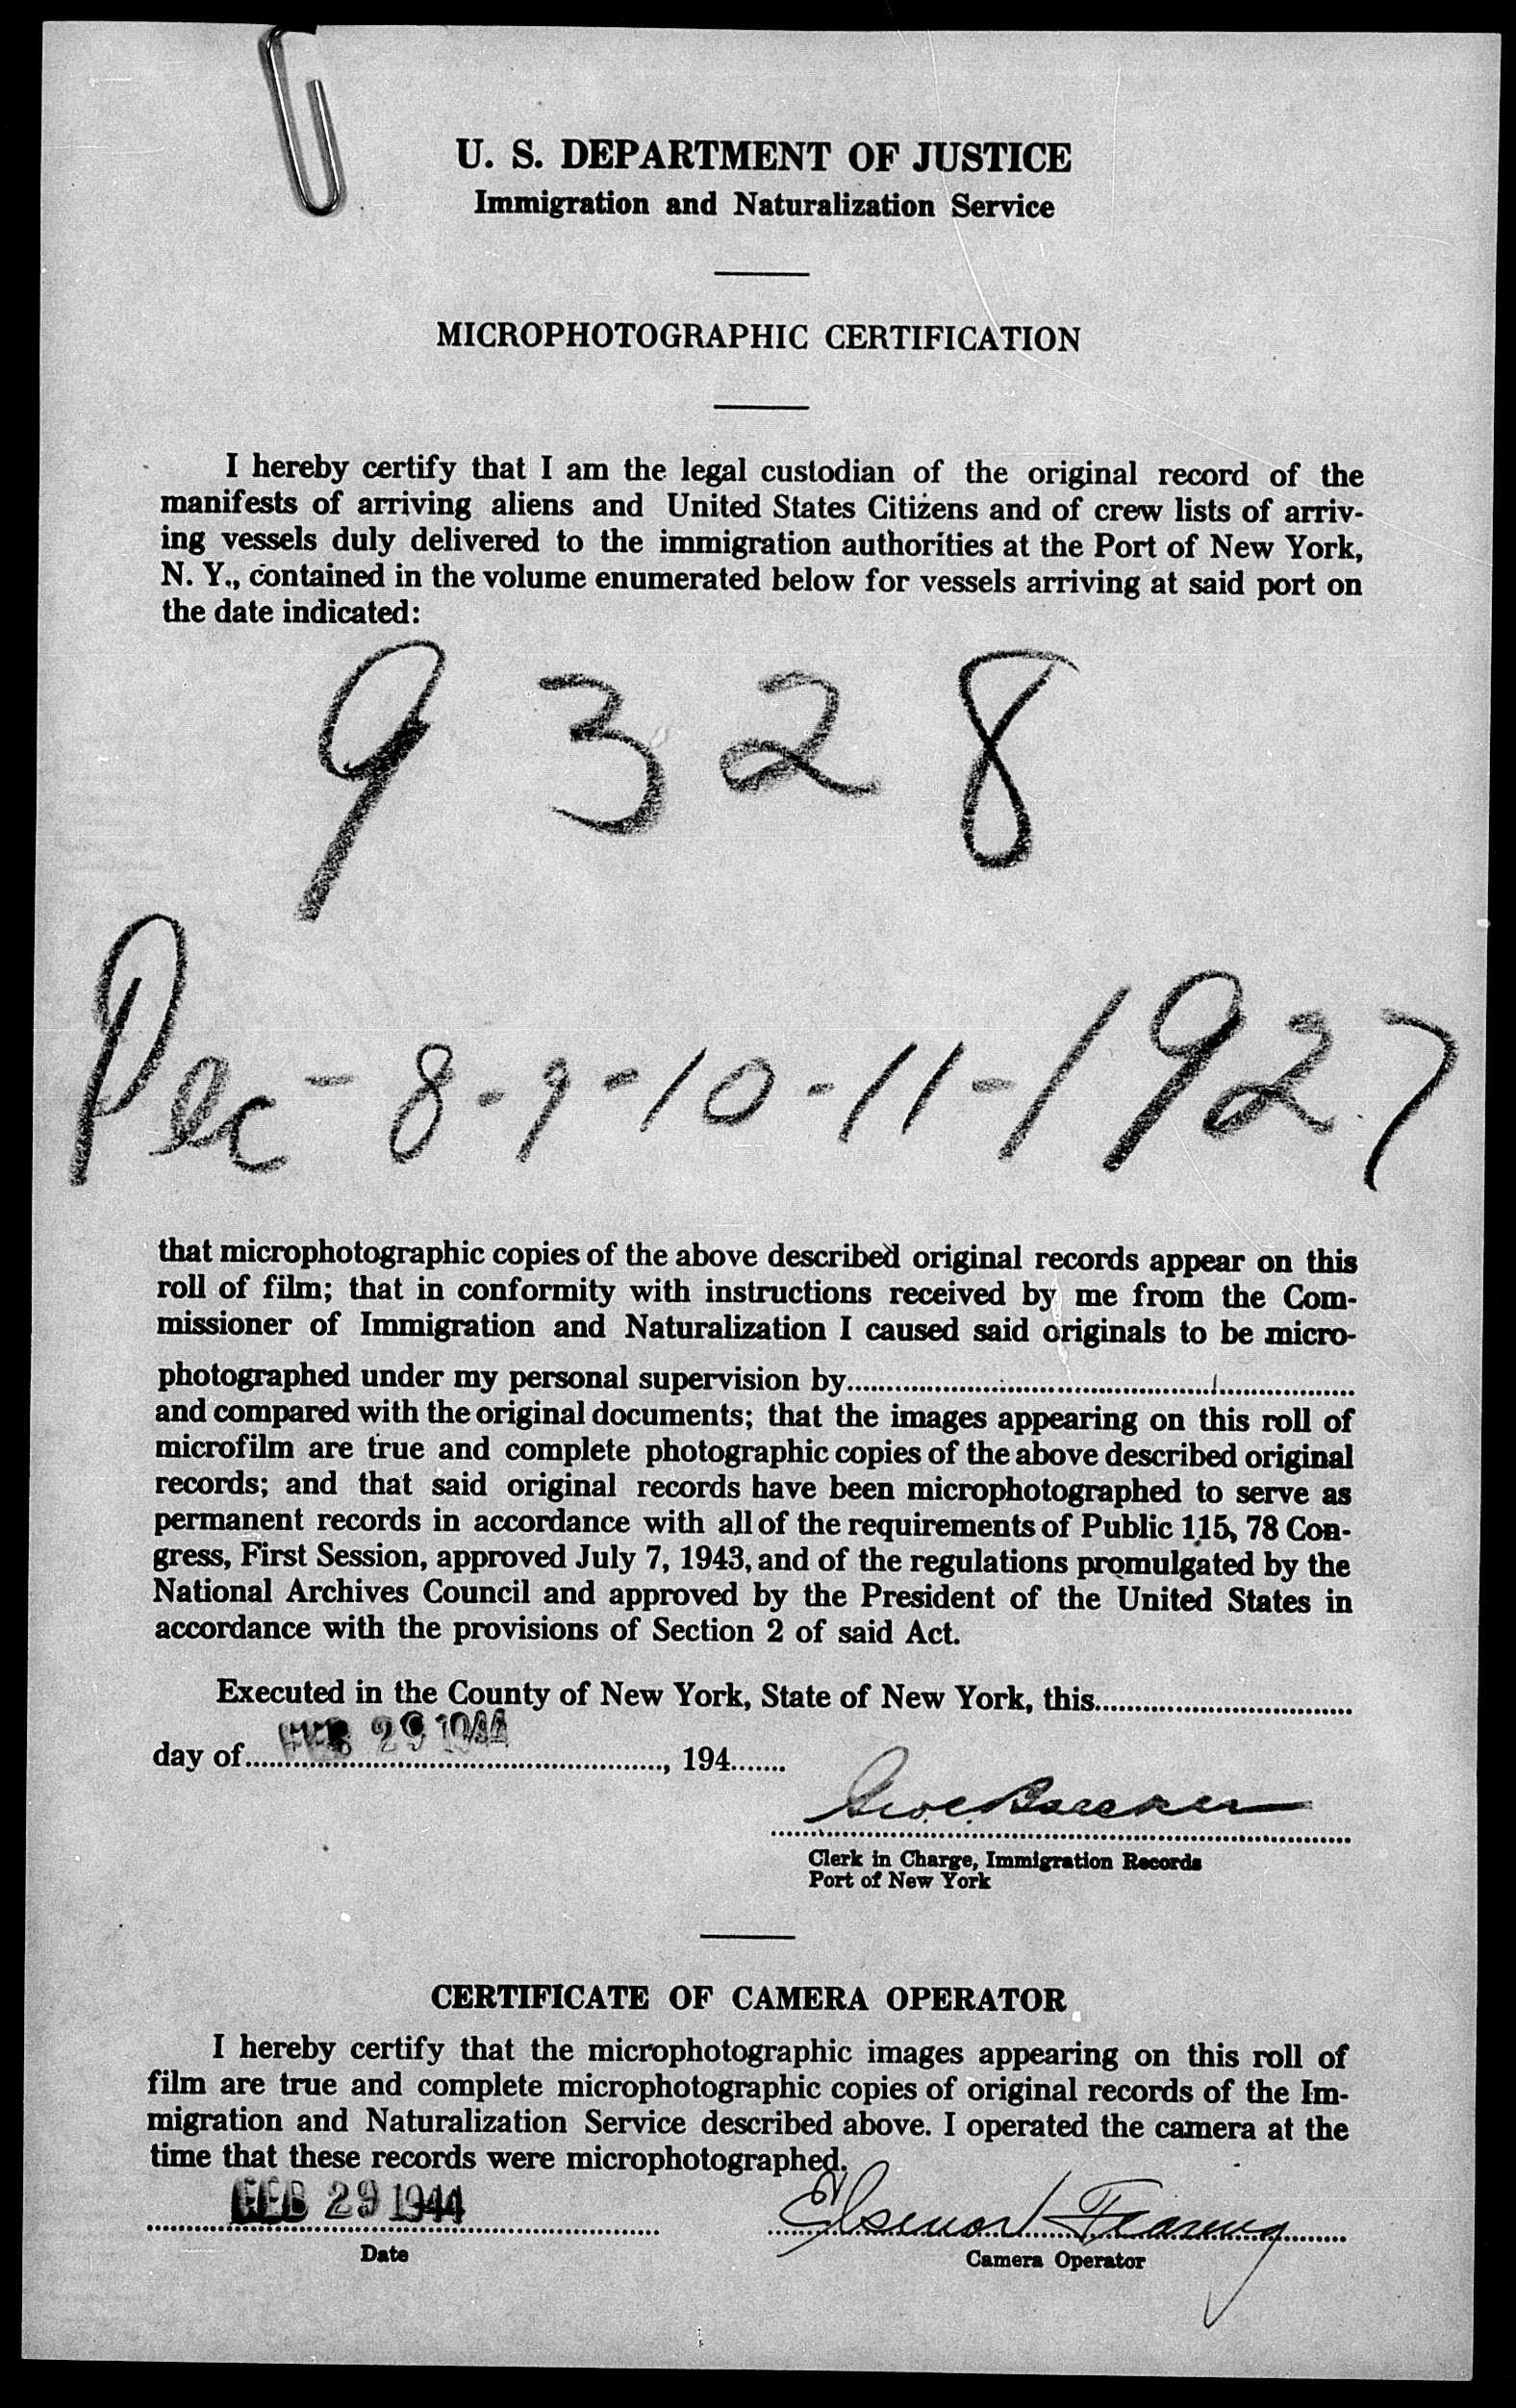 U. S. DEPARTMENT OF JUSTICE
Immigration and Naturalization Service
MICROPHOTOGRAPHIC CERTIFICATION
I hereby certify that I am the legal custodian of the original record of the
manifests of arriving aliens and United States Citizens and of crew lists of arriv-
ing vessels duly delivered to the immigration authorities at the Port of New York,
N. Y., contained in the volume enumerated below for vessels arriving at said port on
the date indicated:
9328
Dec - 8 - 9 - 10 - 11 - 1927
that microphotographic copies of the above described original records appear on this
roll of film; that in conformity with instructions received by me from the Com-
missioner of Immigration and Naturalization I caused said originals to be micro-
photographed under my personal supervision by
and compared with the original documents; that the images appearing on this roll of
microfilm are true and complete photographic copies of the above described original
records; and that said original records have been microphotographed to serve as
permanent records in accordance with all of the requirements of Public 115, 78 Con-
gress, First Session, approved July 7, 1943, and of the regulations promulgated by the
National Archives Council and approved by the President of the United States in
accordance with the provisions of Section 2 of said Act.
Executed in the County of New York, State of New York, this
day of FEB 29 1944, 194
Clerk in Charge, Immigration Records
Port of New York
CERTIFICATE OF CAMERA OPERATOR
I hereby certify that the microphotographic images appearing on this roll of
film are true and complete microphotographic copies of original records of the Im-
migration and Naturalization Service described above. I operated the camera at the
time that these records were microphotographed.
FEB 29 1944
Date
Camera Operator